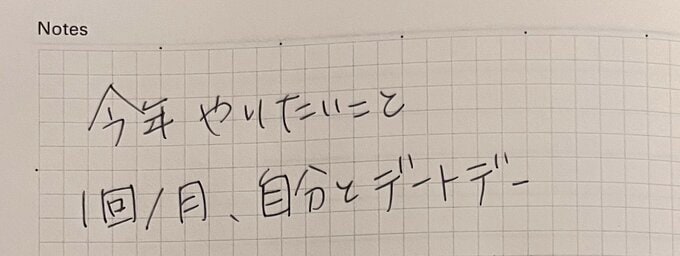 Notes
今年やりたいこと
1回/月、自分とデートデー